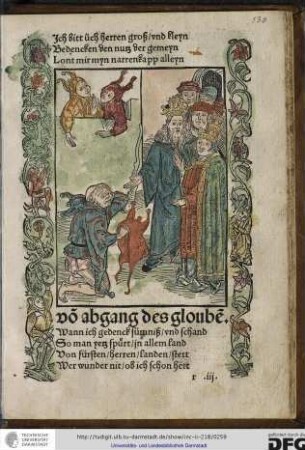 Ich bitt üch herren groß/vnd kleyn
Bedencken den nutz der gemeyn
Lont mir myn narrenkapp alleyn
võ abgang des gloubẽ.
Wann ich gedenck sümniß/vnd schand
So man yetz spürt/jn allem land
Von fürsten/herren/landen/stett
Wer wunder nit/ob ich schon hett
r .iij.
http://tudigit.ulb.tu-darmstadt.de/show/inc-ii-218/0259
Universitäts- und Landesbibliothek Darmstadt
DFG